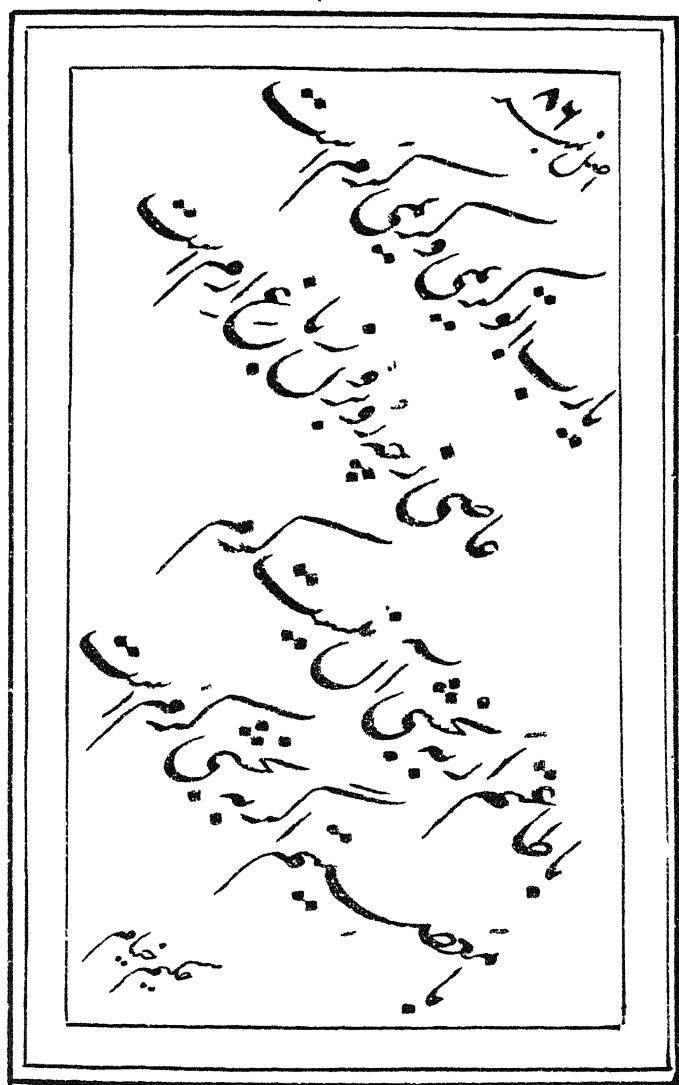 ۸۶
یارب تو کریمی و کریمی کرم است
عاصی ز چه رو برون ز باغ ارم است
با طاعتم ار به بخشی آن نیست کرم
با معصیتم اگر به بخشی کرم است
حکیم خیام